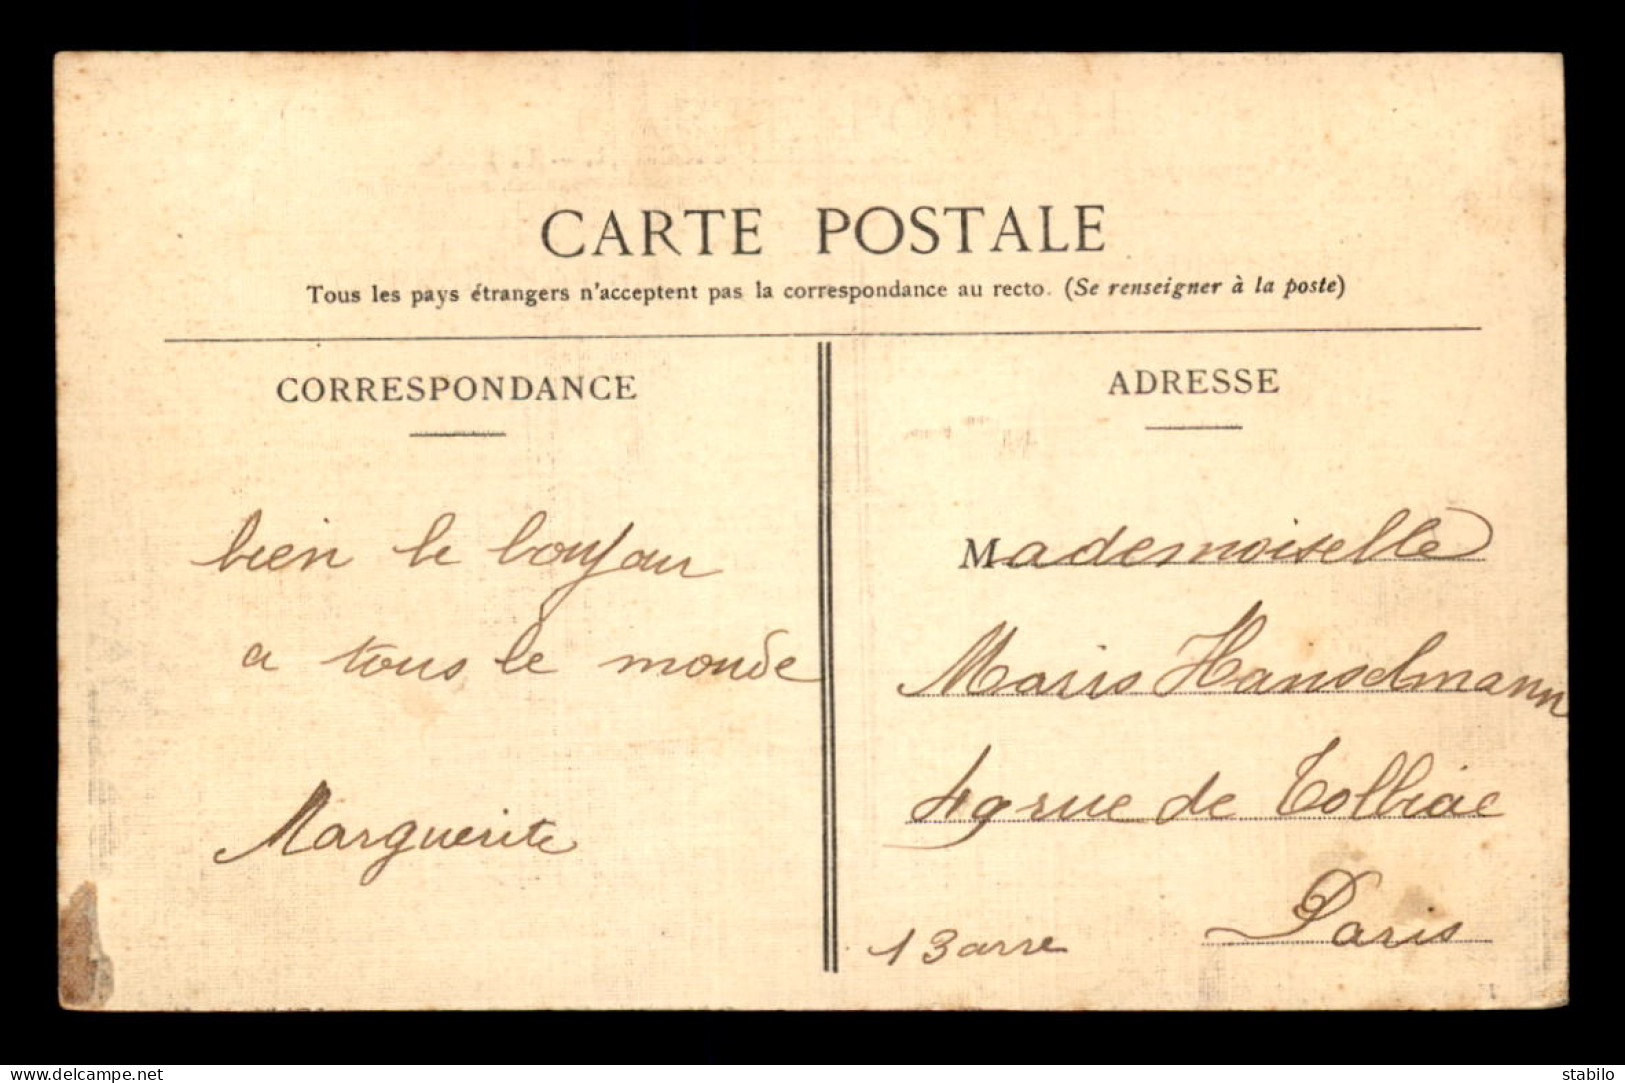 CARTE POSTALE
Tous les pays étrangers n'acceptent pas la correspondance au recto. (Se renseigner à la poste)
CORRESPONDANCE
bien le bonjour
a tous le monde
Marguerite
ADRESSE
Mademoiselle
Maris Hanselmann
49 rue de Tolbiac
Paris
13 arre
www.delcampe.net
stabilo